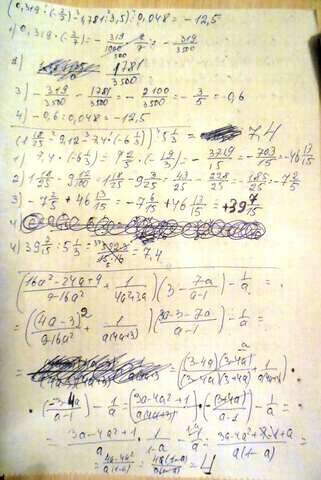 (0,319 : (-3/5) - 1,781 : 3,5) : 0,048 = -12,5
1) 0,319 · (-2/7) = - 319/1000 · 2/7 = - 319/3500
2) 1781/3500
3) - 319/3500 - 1781/3500 = - 2100/3500 = - 3/5 = -0,6
4) -0,6 : 0,048 = -12,5
(1 18/25 - 9,12 - 7,4 · (-6 1/3)) : 5 1/3 = 7,4
2) 1 18/25 - 9 12/100 = 1 18/25 - 9 3/25 = 43/25 - 228/25 = - 185/25 = -7 2/5
3) -7 2/5 + 46 13/15 = -7 6/15 + 46 13/15 = +39 7/15
4)
4) 39 7/15 : 5 1/3 = 7,4
(16a² - 24a + 9 / 9 - 16a² + 1 / 4a² + 3a) (3 - 7a / a - 1) - 1/a =
= ((4a - 3)² / 9 - 16a² + 1 / a(4a + 3)) (3a - 3 - 7a / a - 1) - 1/a =
= ((3 - 4a)(3 - 4a) / (3 - 4a)(3 + 4a) + 1 / a(4a + 3)) ·
· (-3 - 4a / a - 1) - 1/a = (3a - 4a² + 1 / a(4a + 3)) · (-(3 + 4a) / a - 1) - 1/a =
= 3a - 4a² + 1 / a · 1 / 1 - a - 1/a = 3a - 4a² + 1 - 1 + a / a(1 - a) =
= 4a - 4a² / a(1 - a) = 4a(1 - a) / a(1 - a) = 4